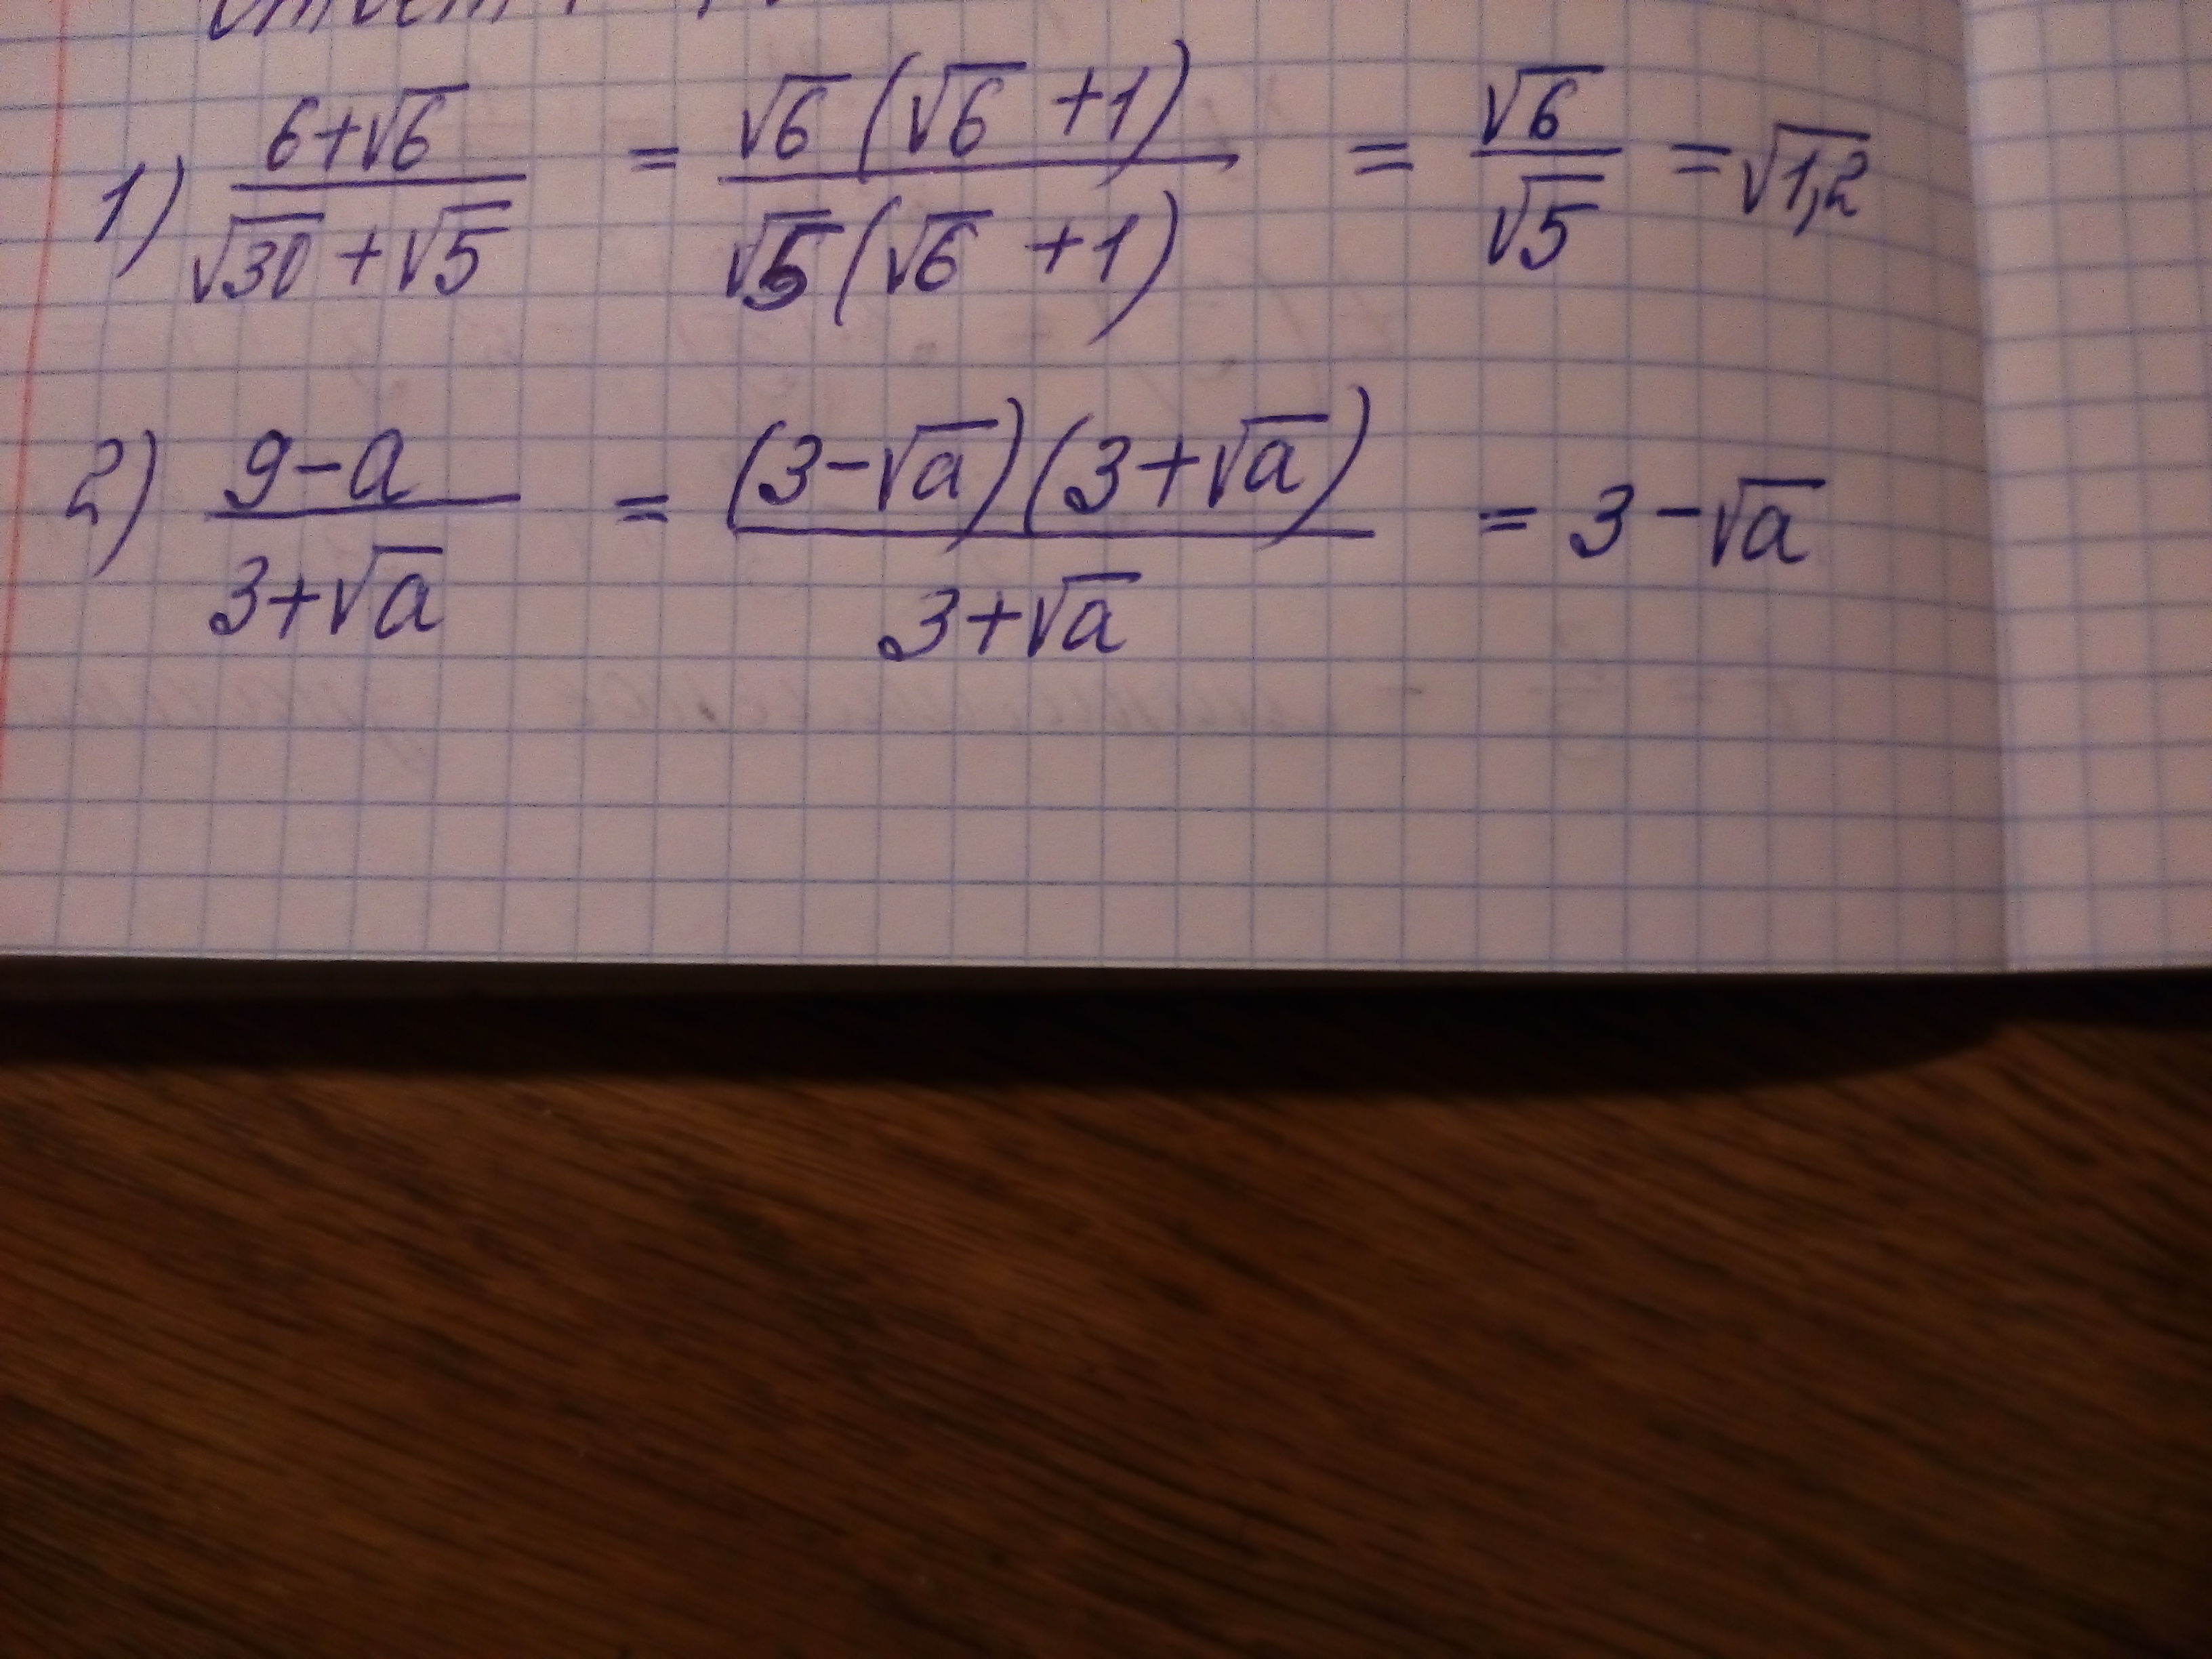 1) (6+√6)/(√30+√5) = (√6(√6+1))/(√5(√6+1)) = √6/√5 = √1,2
2) (9-a)/(3+√a) = ((3-√a)(3+√a))/(3+√a) = 3-√a